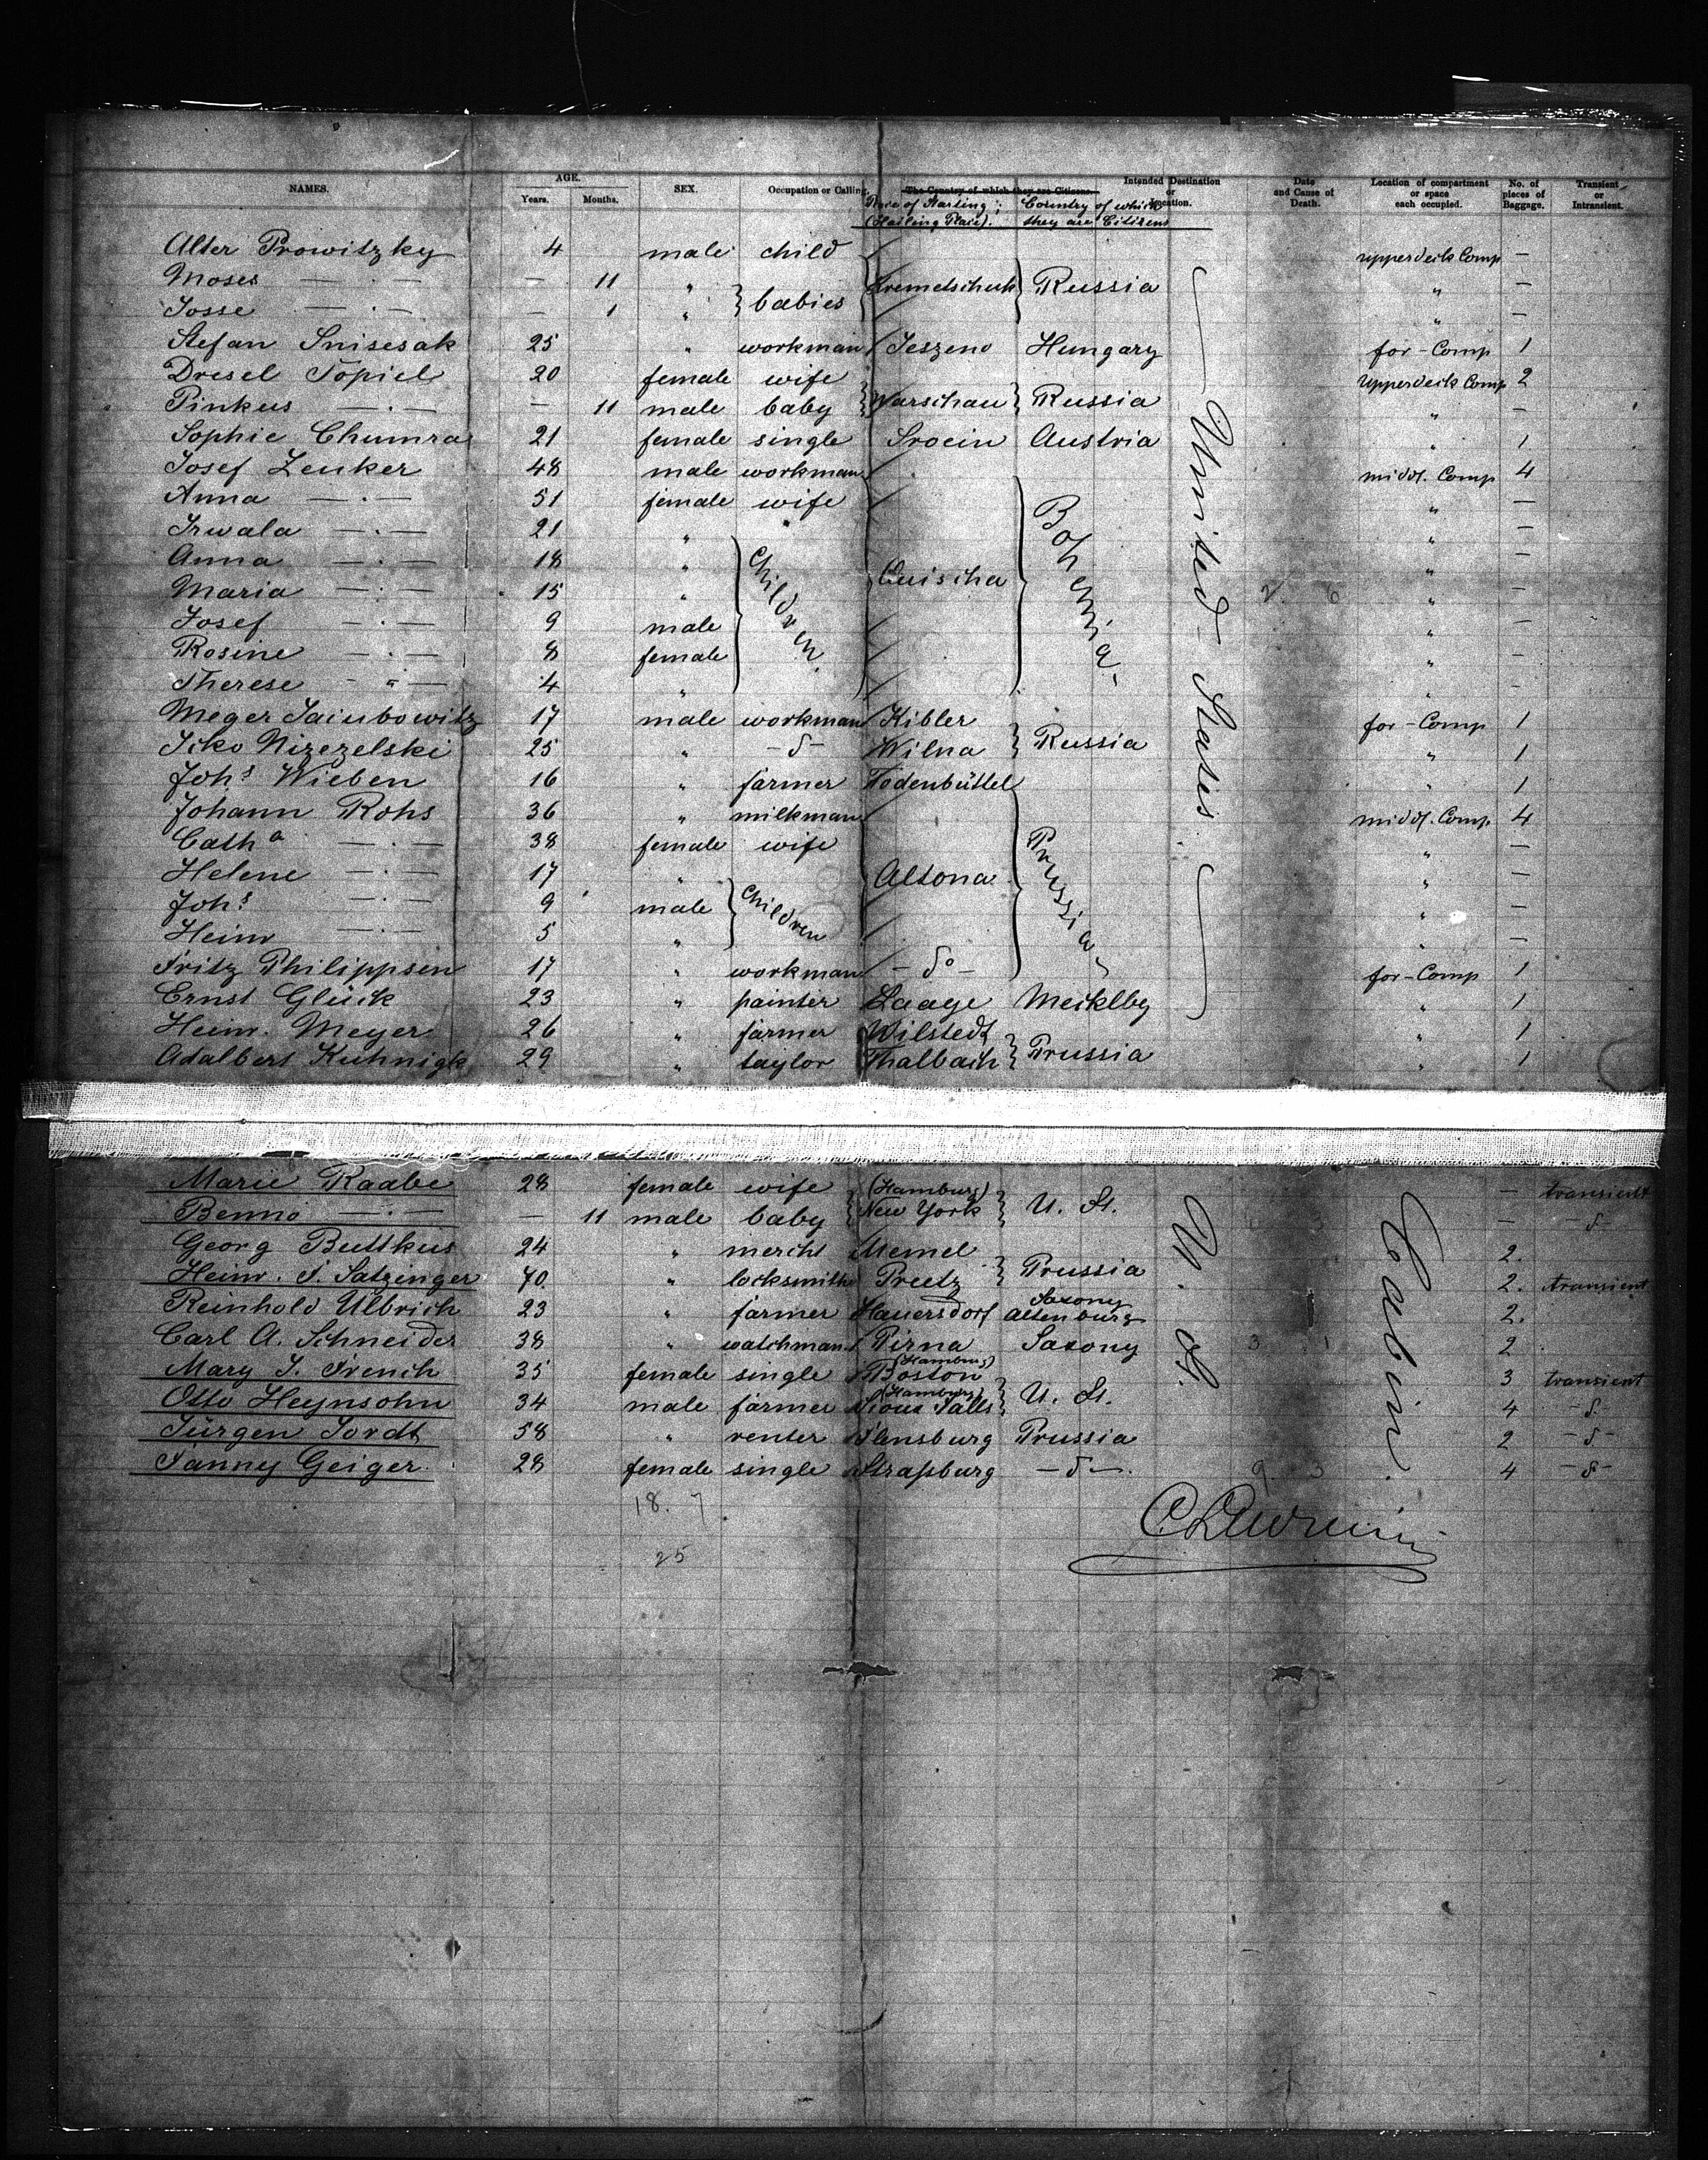 NAMES. AGE. Years. Months. SEX. Occupation or Calling. The Country of which they are Citizens. Intended Destination or Location. Date and Cause of Death. Location of compartment or space each occupied. No. of pieces of Baggage. Transient or Intransient.
Place of Starting; (Hailing Place). Country of which they are Citizens
Alter Prowitzky 4 male child upperdeck Comp —
Moses —·— — 11 " babies Kremetschuk Russia " —
Josse —·— — 1 " " —
Stefan Snisesak 25 " workman Jeszeno Hungary for-Comp 1
Dresel Topiel 20 female wife Warschau Russia Upperdeck Comp 2
Pinkus —·— — 11 male baby " —
Sophie Chumra 21 female single Srocin Austria " 1
Josef Zenker 48 male workman middl. Comp 4
Anna —·— 51 female wife " —
Irwala —·— 21 " " " —
Anna —·— 18 " Children Bohemia " —
Maria —·— 15 " " —
Josef —·— 9 male " —
Rosine —·— 8 female " —
Therese —"— 4 " " —
Meger Jaiubowitz 17 male workman Kibler Russia for-Comp 1
Icko Nizezelski 25 " -d- Wilna " 1
Johs Wieben 16 " farmer Todenbüttel " 1
Johann Rohs 36 " milkman middl. Comp. 4
Catha —·— 38 female wife Prussia " —
Helene —·— 17 " Altona " —
Johs —·— 9 male Children " —
Heinr —·— 5 " " —
Fritz Philippsen 17 " workman — do — for-Comp 1
Ernst Glück 23 " painter Laage Mecklbg " 1
Heinr. Meyer 26 " farmer Wilstedt Prussia " 1
Adalbert Kuhnigk 29 " taylor Thalbach " 1
United States
Marie Raabe 28 female wife (Hamburg) New York U. St. — transient
Benno —·— — 11 male baby — -d-
Georg Buttkus 24 " mercht Memel Prussia 2.
Heinr. F. Satzinger 70 " locksmith Preetz 2. transient
Reinhold Ulbrich 23 " farmer Hauersdorf Saxony Altenburg 2.
Carl A. Schneider 38 " watchman Pirna Saxony 2
Mary J. French 35 female single (Hamburg) Boston U. St. 3 transient
Otto Heynsohn 34 male farmer (Hamburg) Sioux Falls 4 -d-
Jürgen Jordt 58 " renter Flensburg Prussia 2 -d-
Fanny Geiger 28 female single Straßburg -d- 4 -d-
U. St.
Cabin
18. 7
25